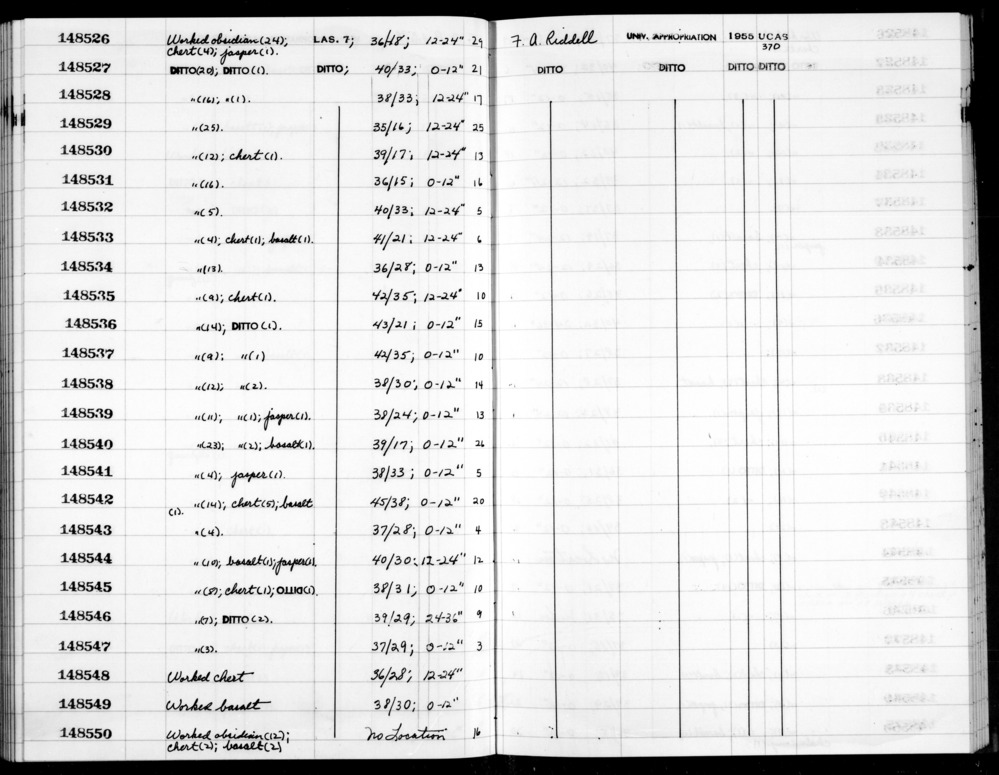 148526 Worked obsidian (24); LAS. 7; 36/18; 12-24" 29 F. A. Riddell UNIV. APPROPRIATION 1955 UCAS
chert (4); jasper (1). 370
148527 DITTO (20); DITTO (1). DITTO; 40/33; 0-12" 21 DITTO DITTO DITTO DITTO
148528 " (16); " (1). 38/33; 12-24" 17
148529 " (25). 35/16; 12-24" 25
148530 " (12); chert (1). 39/17; 12-24" 13
148531 " (16). 36/15; 0-12" 16
148532 " (5). 40/33; 12-24" 5
148533 " (4); chert (1); basalt (1). 41/21; 12-24" 6
148534 " (13). 36/28; 0-12" 13
148535 " (9); chert (1). 42/35; 12-24" 10
148536 " (14); DITTO (1). 43/21; 0-12" 15
148537 " (9); " (1) 42/35; 0-12" 10
148538 " (12); " (2). 38/30; 0-12" 14
148539 " (11); " (1); jasper (1). 38/24; 0-12" 13
148540 " (23); " (2); basalt (1). 39/17; 0-12" 26
148541 " (4); jasper (1). 38/33; 0-12" 5
148542 " (14); chert (5); basalt 45/38; 0-12" 20
(1).
148543 " (4). 37/28; 0-12" 4
148544 " (10); basalt (1); jasper (1). 40/30; 12-24" 12
148545 " (8); chert (1); DITTO (1). 38/31; 0-12" 10
148546 " (7); DITTO (2). 39/29; 24-36" 9
148547 " (3). 37/29; 0-12" 3
148548 Worked chert 36/28; 12-24"
148549 Worked basalt 38/30; 0-12"
148550 Worked obsidian (12); no Location 16
chert (2); basalt (2)